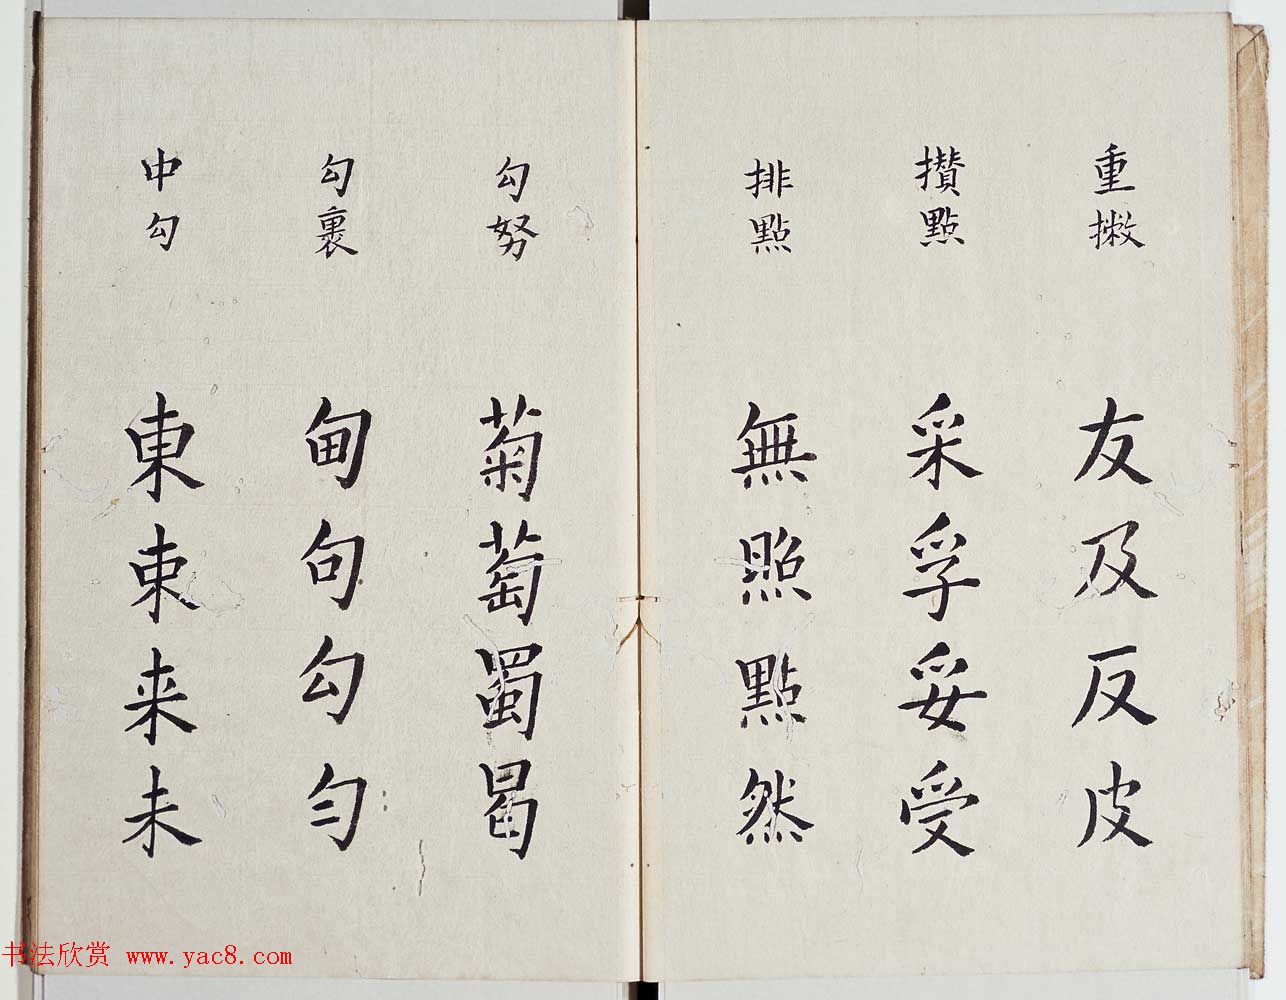 重撇
友及反皮
攢點
采孚妥受
排點
無照點然
勾努
菊萄蜀曷
勾裹
甸句勾勻
中勾
東柬来未
书法欣赏 www.yac8.com